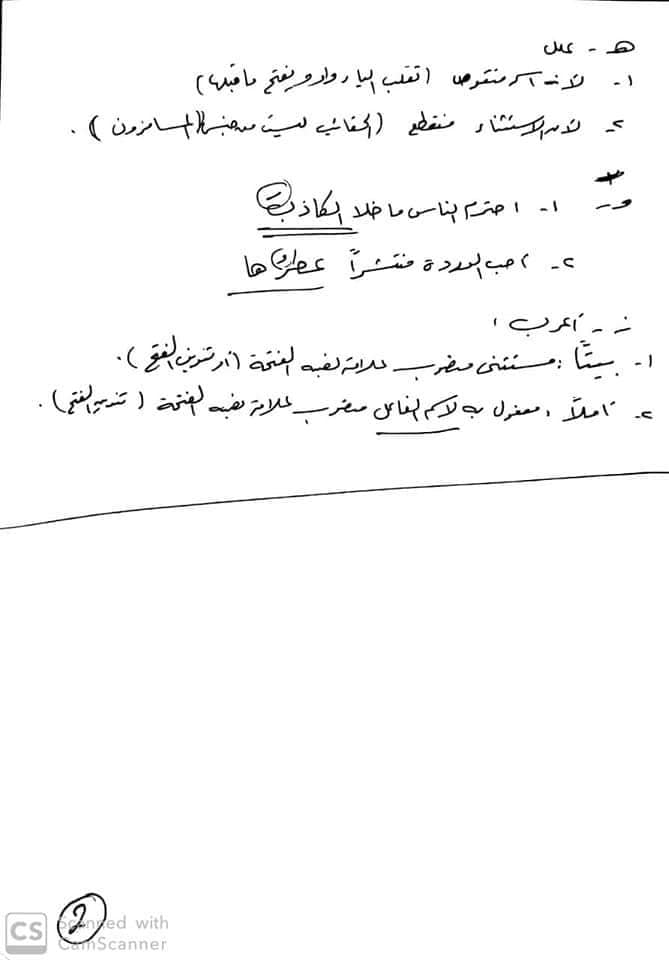 هـ - علل
١- لأنه اسم منقوص (تقلب الياء واو ويفتح ما قبلها)
٢- لأن الاستثناء منقطع (الحقائب ليست من جنس المسافرون).
و- ١- احترم الناس ما خلا الكاذب
٢- أحب الوردة منتشراً عطرها
ز - أعرب:
١- بيتاً: مستثنى منصوب علامة نصبه الفتحة (أو تنوين الفتح).
٢- آملاً: مفعول به لاسم الفاعل منصوب علامة نصبه الفتحة (تنوين الفتح).
2
CS Scanned with
CamScanner